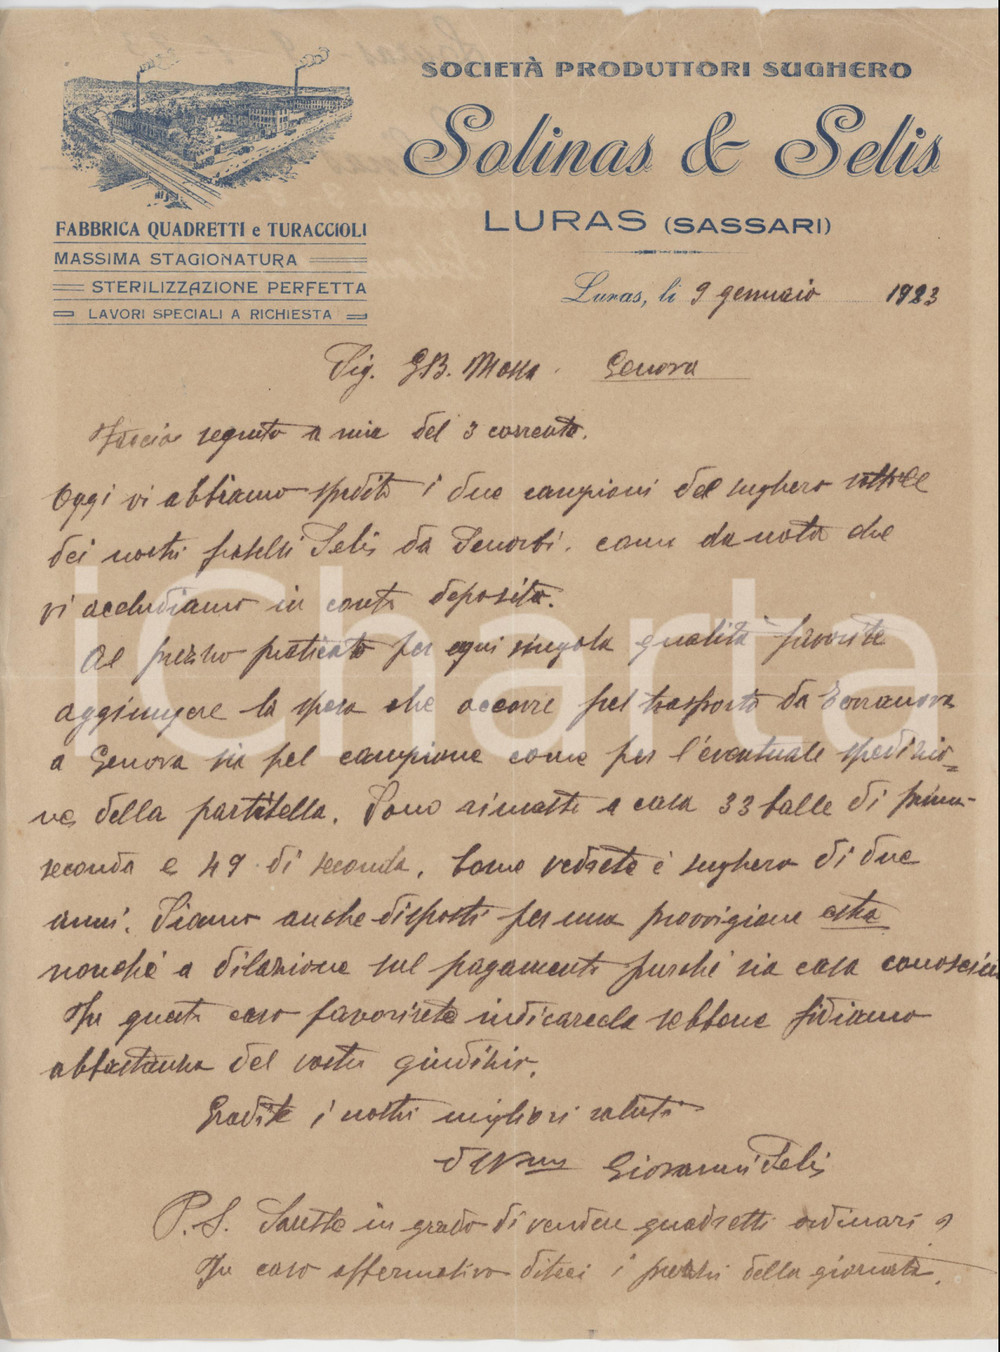 SOCIETÀ PRODUTTORI SUGHERO
Solinas & Selis
LURAS (SASSARI)
FABBRICA QUADRETTI e TURACCIOLI
MASSIMA STAGIONATURA
STERILIZZAZIONE PERFETTA
LAVORI SPECIALI A RICHIESTA
Luras, li 9 gennaio 1923
Sig. GB. Mossa. Genova
Faccio seguito a mia del 3 corrente.
Oggi vi abbiamo spedito i due campioni del sughero sottile
dei nostri fratelli Selis da Senorbì. come da nota che
vi accludiamo in conto deposito.
Al prezzo praticato per ogni singola qualità favorite
aggiungere la spesa che occorre pel trasporto da Terranova
a Genova sia pel campione come per l'eventuale spedizio=
ne della partitella. Sono rimaste a casa 33 balle di prima-
seconda e 49 di seconda. Come vedrete è sughero di due
anni. Siamo anche disposti per una provvigione
nonchè a dilazione sul pagamento purchè sia casa
In questo caso favorirete indicarcela sebbene fidiamo
abbastanza del vostro giudizio.
Gradite i nostri migliori saluti
Giovanni Selis
P.S. Sareste in grado di vendere quadretti ordinari?
In caso affermativo diteci i prezzi della giornata.
iCharta